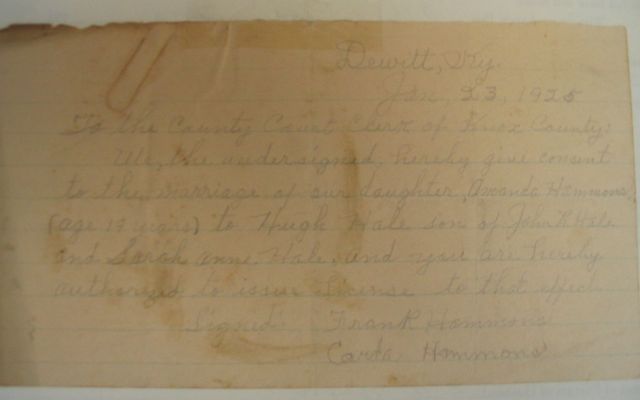 Dewitt, Ky.
Jan, 23, 1925
To the County Court Clerk of Knox County:
We, the undersigned, hereby give consent
to the marriage of our daughter, Amanda Hammons,
(age 19 years) to Hugh Hale son of John H Hale
and Sarah Anne Hale, and you are hereby
authorized to issue license to that effect
Signed: Frank Hammons
Hammons